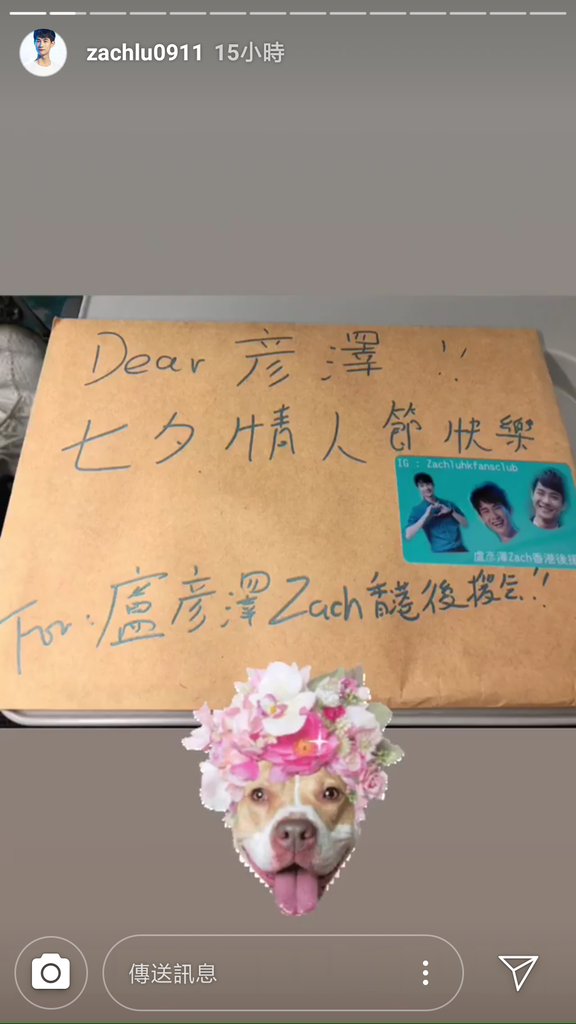 zachlu0911 15小時
Dear 彥澤 !!
七夕情人節快樂
IG : Zachluhkfansclub
盧彥澤Zach香港後援
For: 盧彥澤Zach香港後援会!!
傳送訊息